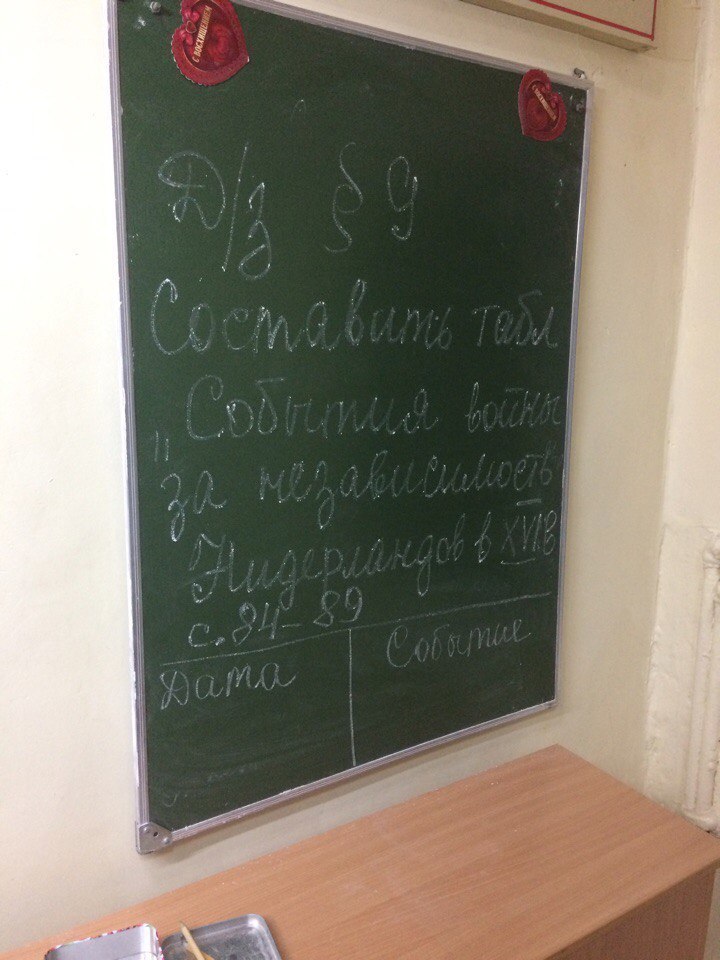 С ВОСХИЩЕНИЕМ
С ВОСХИЩЕНИЕМ
Д/з § 9
Составить табл
„События войны
за независимость
Нидерландов в XVIв
с. 84-89
Дата
Событие